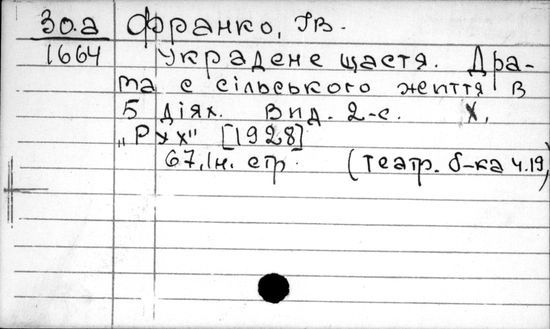 30.а Франко, Ів.
1664 Украдене щастя. Дра-
ма с сільського життя в
5 діях. Вид. 2-е. Х.,
"Рух" [1928]
67,1н. стр. (Театр. б-ка ч.19)